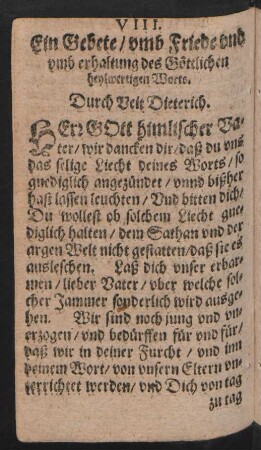 VIII.
Ein Gebete / vmb Friede vnd
vmb erhaltung des Göttlichen
heylwertigen Worts.
Durch Veitz Dieterich.
HErr GOtt himlischer Va-
ter / wir dancken dir / daß du vns
das selige Liecht deines Worts / so
gnediglich angezündet / vnnd bißher
hast lassen leuchten / Vnd bitten dich /
Du wollest ob solchem Liecht gne-
diglich halten / dem Sathan vnd der
argen Welt nicht gestatten / daß sie es
ausleschen. Laß dich vnser erbar-
men / lieber Vater / vber welche sol-
cher Jammer sonderlich wird ausge-
hen. Wir sind noch jung vnd vn-
erzogen / vnd bedürffen für vnd für /
daß wir in deiner Furcht / vnd inn
deinem Wort / von vnsern Eltern vn-
terrichtet werden / vnd Dich von tag
zu tag